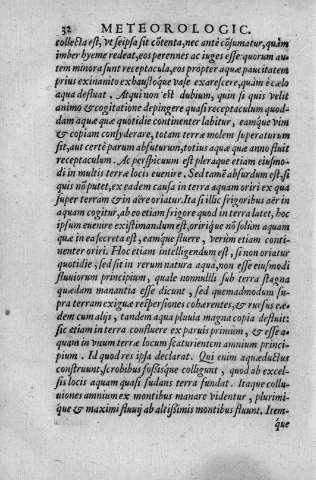 32 METEOROLOGIC.
collecta est, vt seipsa sit cōtenta, nec antè cōsumatur, quàm
imber hyeme redeat, eos perennes ac iuges esse: quorum au-
tem minora sunt receptacula, eos propter aquæ paucitatem
prius exinanito exhaustóque vase exarescere, quàm è cælo
aqua defluat. Atqui non est dubium, quin si quis velit
animo & cogitatione depingere quasi receptaculum quod-
dam aquæ quæ quotidie continenter labitur, eamque vim
& copiam consyderare, totam terræ molem superaturum
sit, aut certè parum absuturum, totius aquæ quæ anno fluit
receptaculum. Ac perspicuum est pleraque etiam eiusmo-
di in multis terræ locis euenire. Sed tamē absurdum est, si
quis nō putet, ex eadem causa in terra aquam oriri ex qua
super terram & in aëre oriatur. Ita si illic frigoribus aër in
aquam cogitur, ab eo etiam frigore quod in terra latet, hoc
ipsum euenire existimandum est, oririque nō solùm aquam
quæ in ea secreta est, eamque fluere, verùm etiam conti-
nenter oriri. Hoc etiam intelligendum est, si non oriatur
quotidie, sed sit in rerum natura aqua, non esse eiusmodi
fluuiorum principium, quale nonnulli sub terra stagna
quædam manantia esse dicunt, sed quemadmodum su-
pra terram exiguæ respersiones cohærentes, & rursus eæ-
dem cum alijs, tandem aqua pluuia magna copia defluit:
sic etiam in terra confluere ex paruis primùm, & esse a-
quam in vnum terræ locum scaturientem amnium princi-
pium. Id quod res ipsa declarat. Qui enim aquæductus
construunt, scrobibus fossisque colligunt, quod ab excel-
sis locis aquam quasi sudans terra fundat. Itaque collu-
uiones amnium ex montibus manare videntur, plurimi-
que & maximi fluuij ab altissimis montibus fluunt. Item-
que